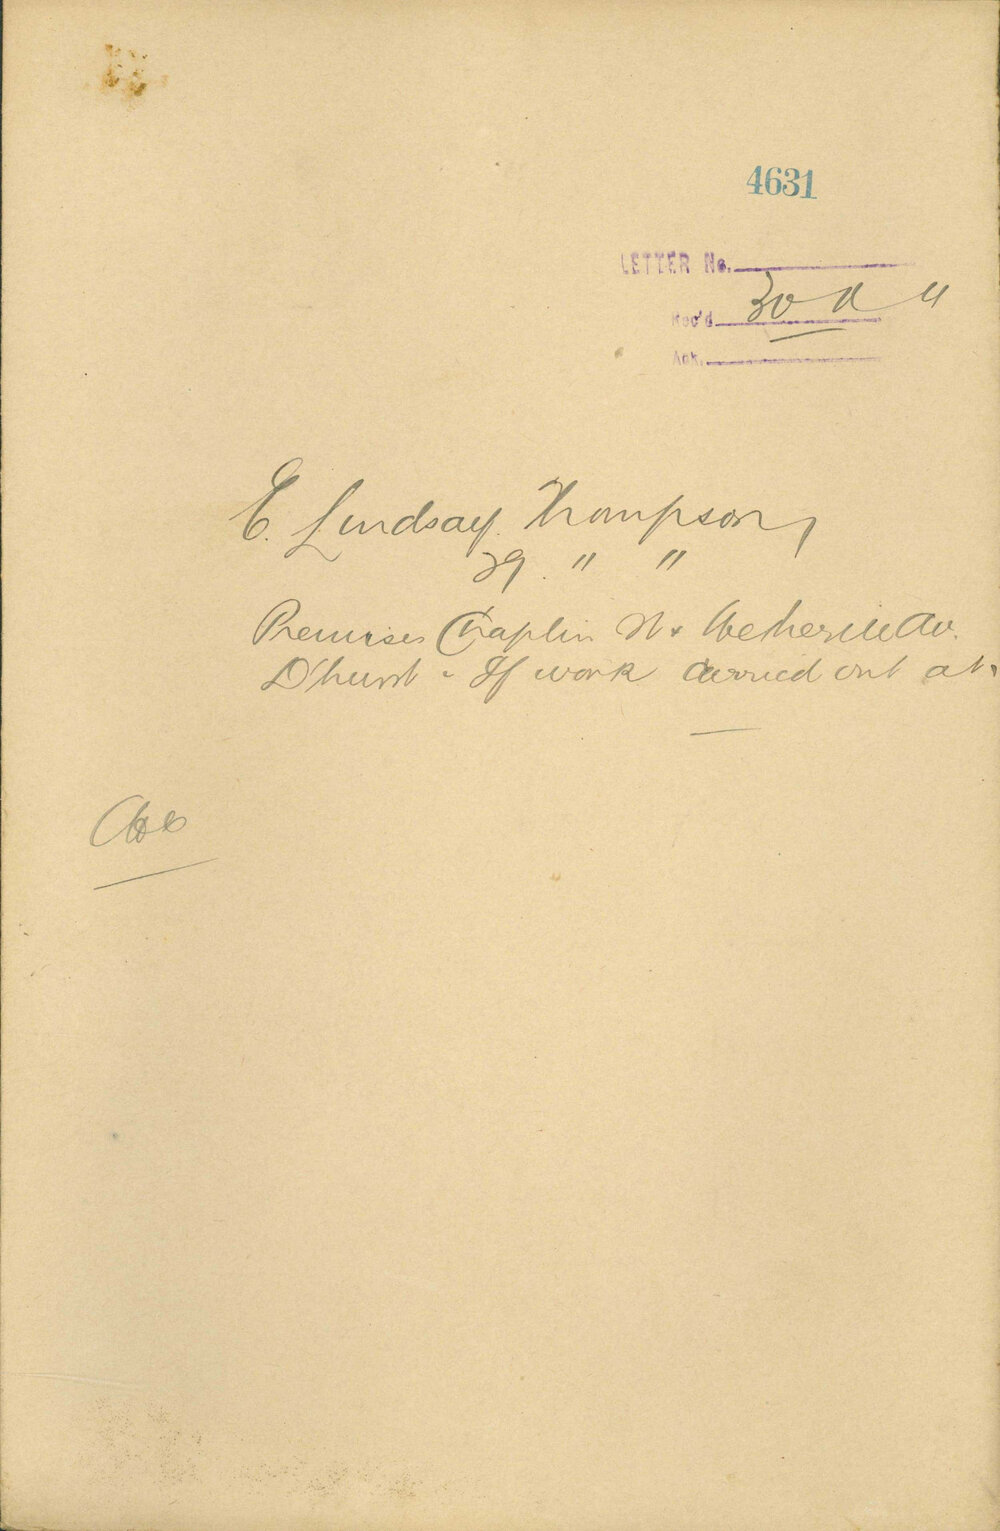 4631
LETTER No.
Rec'd 30
Ack.
E. Lindsay Thompson,
29. " "
Premises Chaplin
D'hurst - If work carried out at